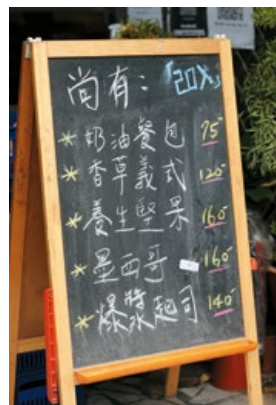 尚有:
*奶油餐包 75
*香草義式 120
*養生堅果 160
*墨西哥 160
*爆漿起司 140